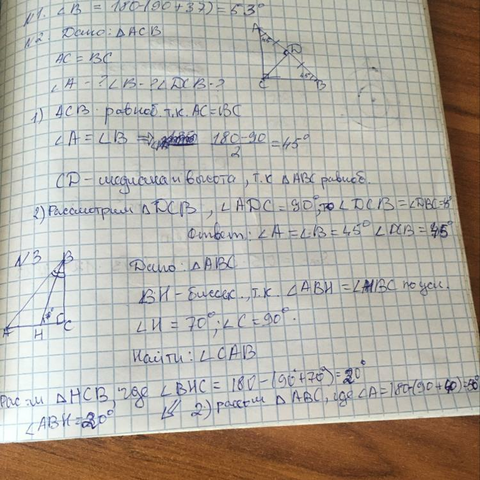 №1. ∠B = 180-(90+37) = 53°
№2. Дано: △ACB
AC = BC
∠A - ? ∠B - ? ∠DCB - ?
A
D
C
B
1) ACB - равноб. т.к. AC=BC
∠A = ∠B ⇒ 180-90/2 = 45°
CD - медиана и высота, т.к △ABC равноб.
2) Рассмотрим △DCB, ∠ADC = 90°, то ∠DCB = ∠DBC=
Ответ: ∠A = ∠B = 45° ∠DCB = 45°
№3
B
A
H
C
Дано: △ABC
BH - биссек., т.к. ∠ABH = ∠HBC по усл.
∠H = 70°; ∠C = 90°.
Найти: ∠CAB
△HCB, где ∠BHC = 180-(90°+70°) = 20°
∠ABH = 20°
2) рассм △ABC, где ∠A = 180-(90+40) = 50°